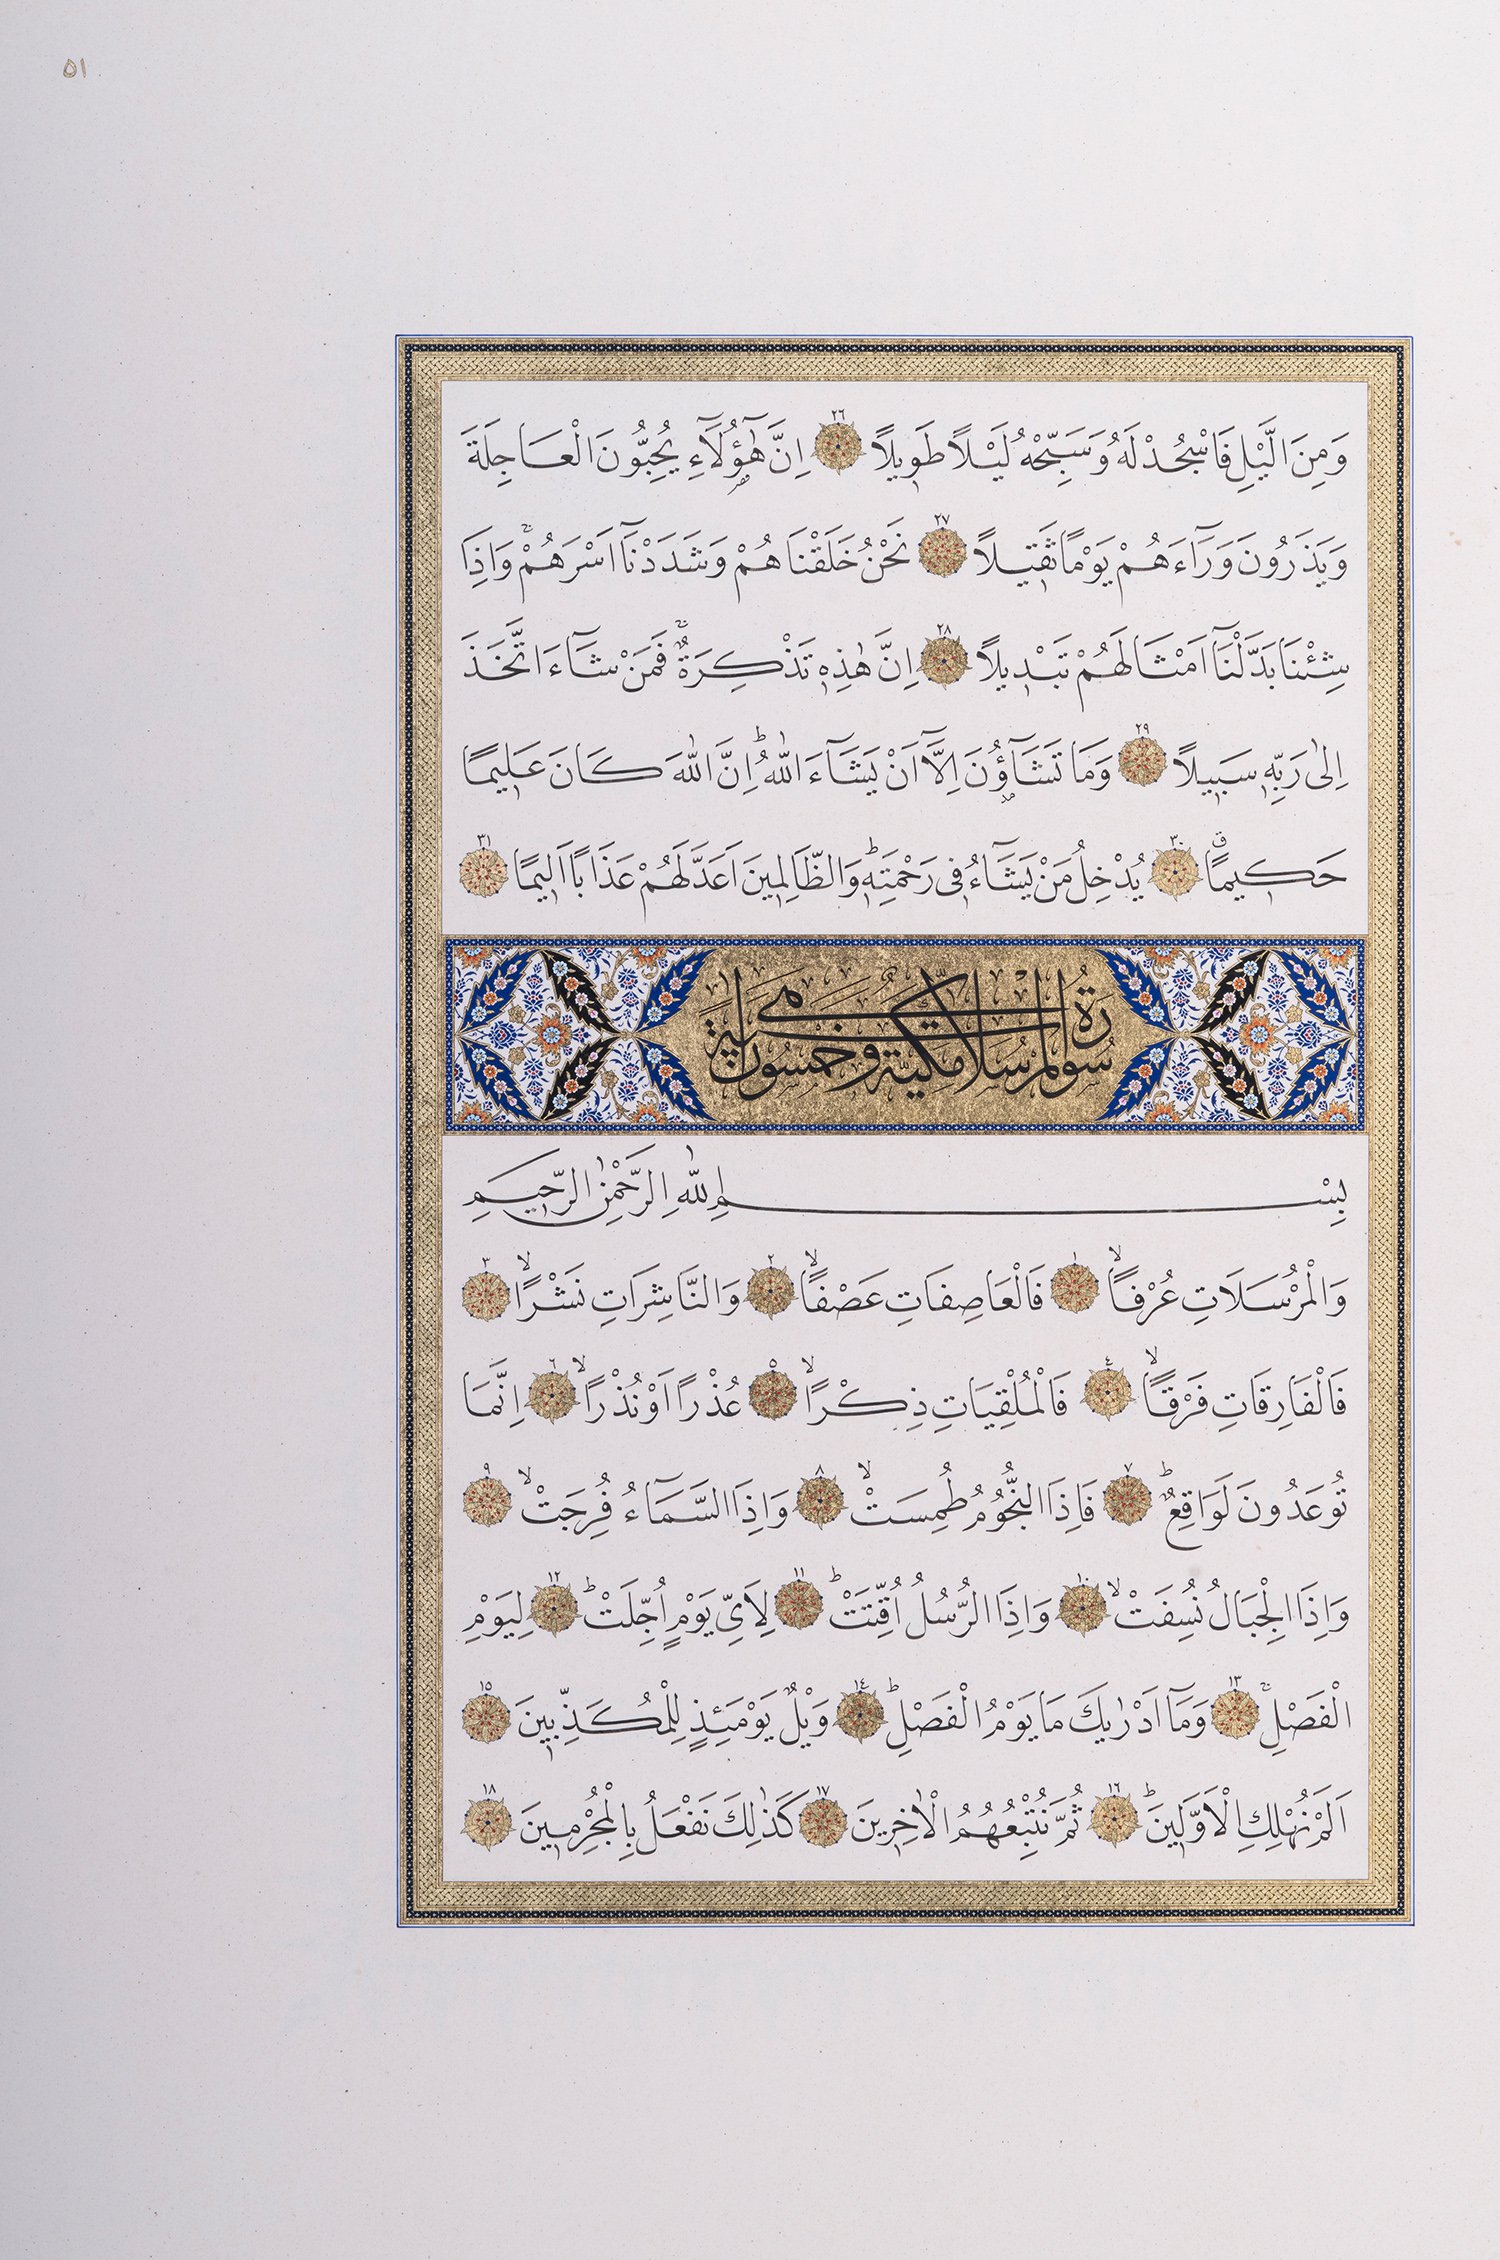 ٥١
وَمِنَ الَّيْلِ فَاسْجُدْ لَهُ وَسَبِّحْهُ لَيْلًا طَوِيلًا ٢٦ اِنَّ هٰٓؤُلَٓاءِ يُحِبُّونَ الْعَاجِلَةَ
وَيَذَرُونَ وَرَٓاءَهُمْ يَوْمًا ثَقِيلًا ٢٧ نَحْنُ خَلَقْنَاهُمْ وَشَدَدْنَٓا اَسْرَهُمْۚ وَاِذَا
شِئْنَا بَدَّلْنَٓا اَمْثَالَهُمْ تَبْدِيلًا ٢٨ اِنَّ هٰذِهِ تَذْكِرَةٌۚ فَمَنْ شَٓاءَ اتَّخَذَ
اِلٰى رَبِّهِ سَبِيلًا ٢٩ وَمَا تَشَٓاؤُنَ اِلَّٓا اَنْ يَشَٓاءَ اللّٰهُۜ اِنَّ اللّٰهَ كَانَ عَلِيمًا
حَكِيمًاۗ ٣٠ يُدْخِلُ مَنْ يَشَٓاءُ فِى رَحْمَتِهِۜ وَالظَّالِمِينَ اَعَدَّ لَهُمْ عَذَابًا اَلِيمًا ٣١
سُورَةُ الْمُرْسَلَاتِ مَكِّيَّةٌ وَهِيَ خَمْسُونَ اٰيَةً
بِسْمِ اللّٰهِ الرَّحْمٰنِ الرَّحِيمِ
وَالْمُرْسَلَاتِ عُرْفًاۙ ١ فَالْعَاصِفَاتِ عَصْفًاۙ ٢ وَالنَّاشِرَاتِ نَشْرًاۙ ٣
فَالْفَارِقَاتِ فَرْقًاۙ ٤ فَالْمُلْقِيَاتِ ذِكْرًاۙ ٥ عُذْرًا اَوْ نُذْرًاۙ ٦ اِنَّمَا
تُوعَدُونَ لَوَاقِعٌۜ ٧ فَاِذَا النُّجُومُ طُمِسَتْۙ ٨ وَاِذَا السَّمَٓاءُ فُرِجَتْۙ ٩
وَاِذَا الْجِبَالُ نُسِفَتْۙ ١٠ وَاِذَا الرُّسُلُ اُقِّتَتْۜ ١١ لِاَىِّ يَوْمٍ اُجِّلَتْۜ ١٢ لِيَوْمِ
الْفَصْلِۚ ١٣ وَمَٓا اَدْرٰيكَ مَا يَوْمُ الْفَصْلِۜ ١٤ وَيْلٌ يَوْمَئِذٍ لِلْمُكَذِّبِينَ ١٥
اَلَمْ نُهْلِكِ الْاَوَّلِينَۜ ١٦ ثُمَّ نُتْبِعُهُمُ الْاٰخِرِينَ ١٧ كَذٰلِكَ نَفْعَلُ بِالْمُجْرِمِينَ ١٨